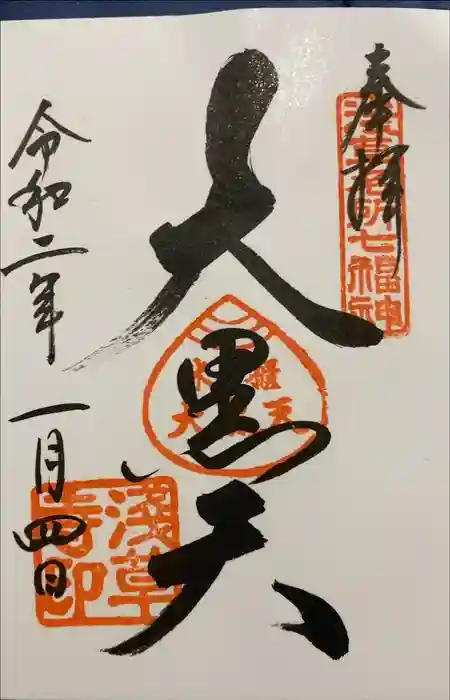 奉拝
浅草名所七福神
大黒天
令和二年一月四日
淺草
寺印